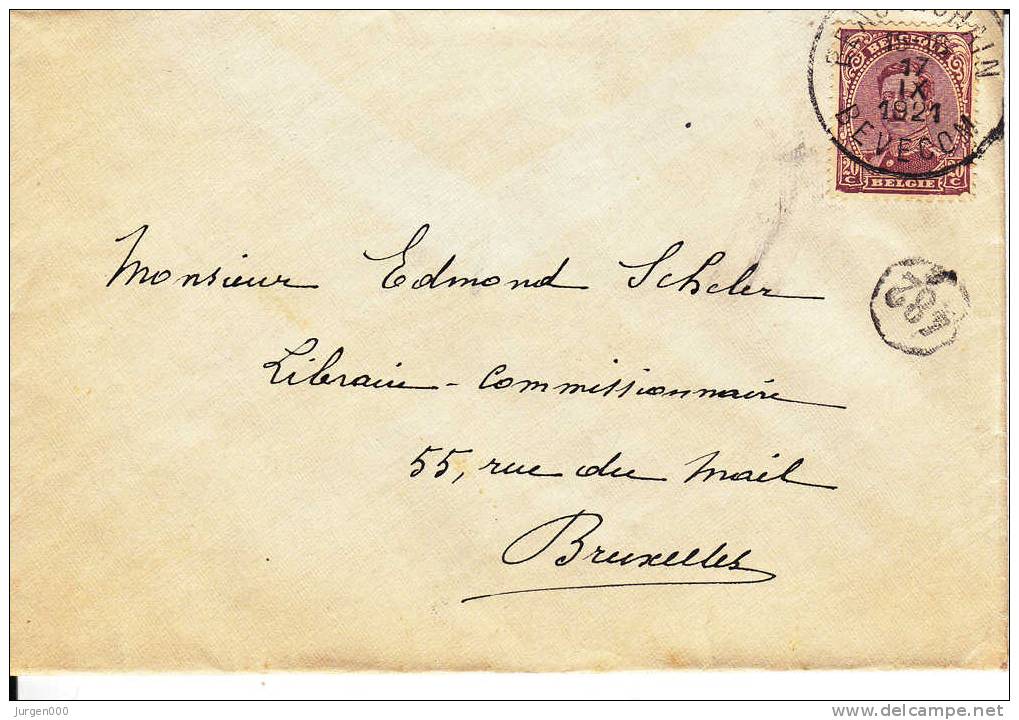 BEAUVECHAIN
17
IX
1921
BEVECOM
BELGIQUE
20 C
BELGIE
Monsieur Edmond Scheler
Libraire-Commissionnaire
55, rue du Mail
Bruxelles
Jurgen000
www.delcampe.net